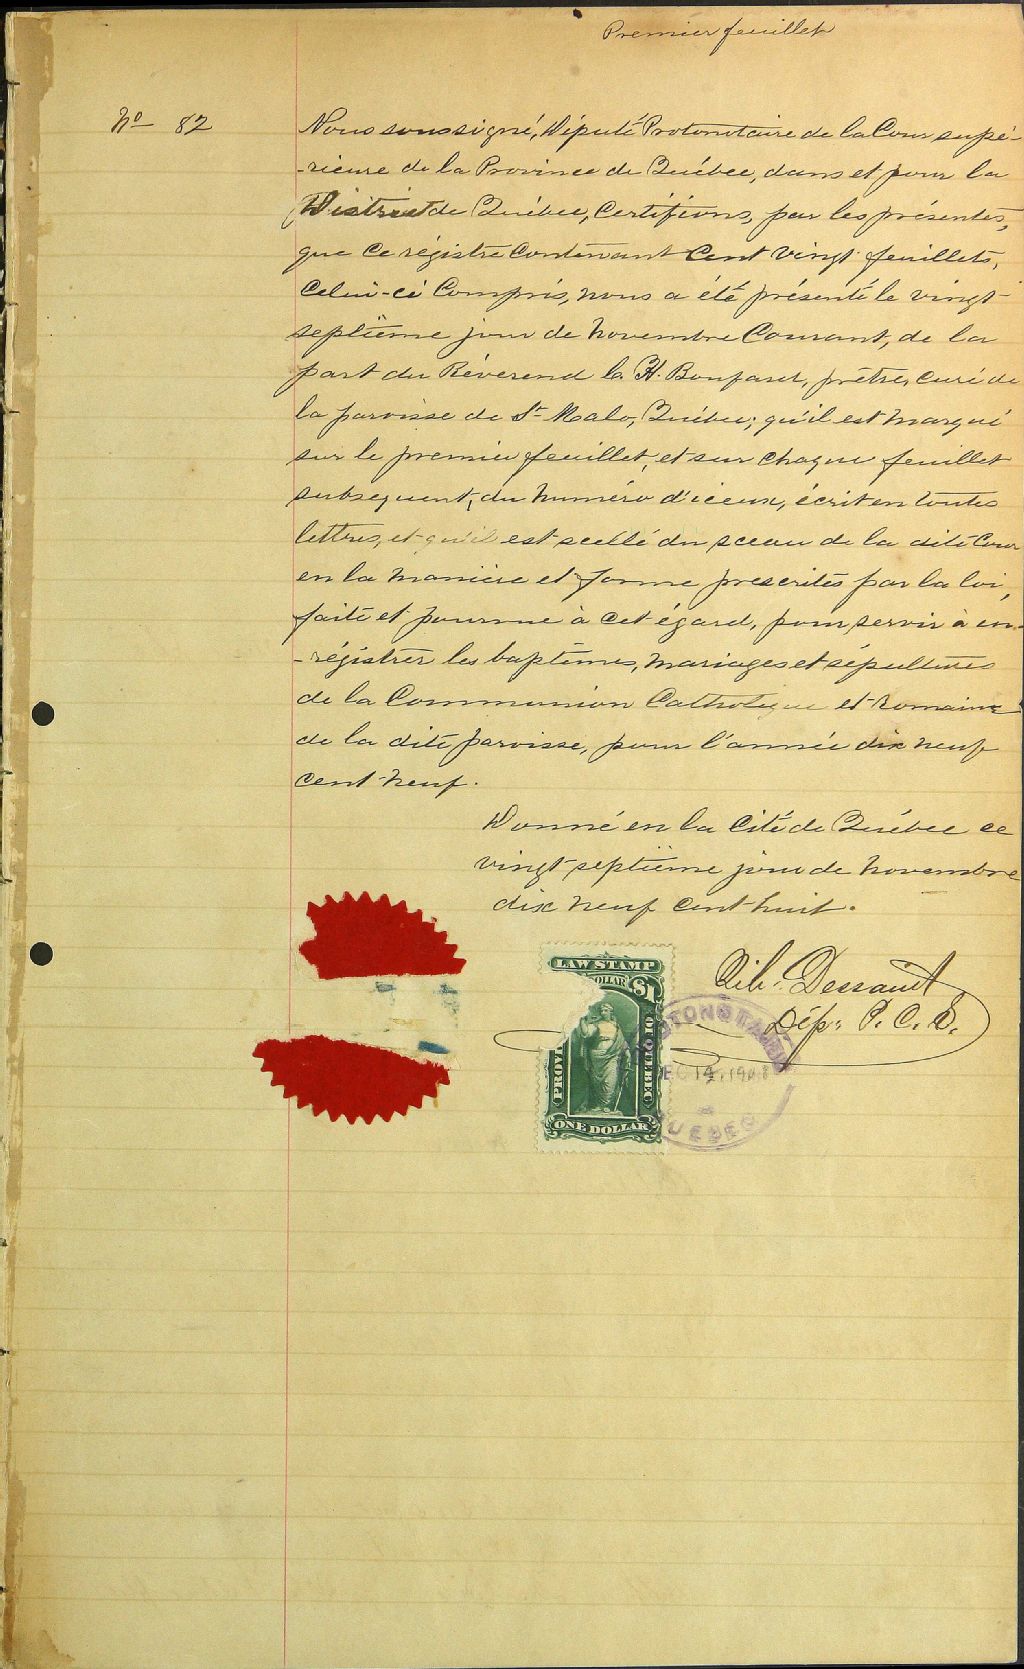 Premier feuillet
No 82
Nous soussigné, Député Protonotaire de la Cour supé-
-rieure de la Province de Québec, dans et pour le
District de Québec, Certifions, par les présentes,
que ce régistre contenant Cent vingt feuillets,
Celui-ci Compris, nous a été présenté le vingt
septième jour de Novembre Courant, de la
part du Révérend H. Bouffard, prêtre, curé de
la paroisse de St Malo, Québec; qu'il est marqué
sur le premier feuillet, et sur chaque feuillet
subsequent, du numéro d'iceux, écrit en toutes
lettres, et qu'il est scellé du sceau de la dite Cour
en la manière et forme prescrites par la loi,
faite et pourvue à cet égard, pour servir à en-
-régistrer les baptêmes, mariages et sépultures
de la Communion Catholique et romaine
de la dite paroisse, pour l'année dix neuf
cent neuf.
Donné en la Cité de Québec ce
vingt septième jour de Novembre
dix neuf cent huit.
LAW STAMP
DOLLAR $1
PROVI
OF QUEBEC
ONE DOLLAR
Dessault
Dép: P. C. S.
14, 1908
QUEBEC